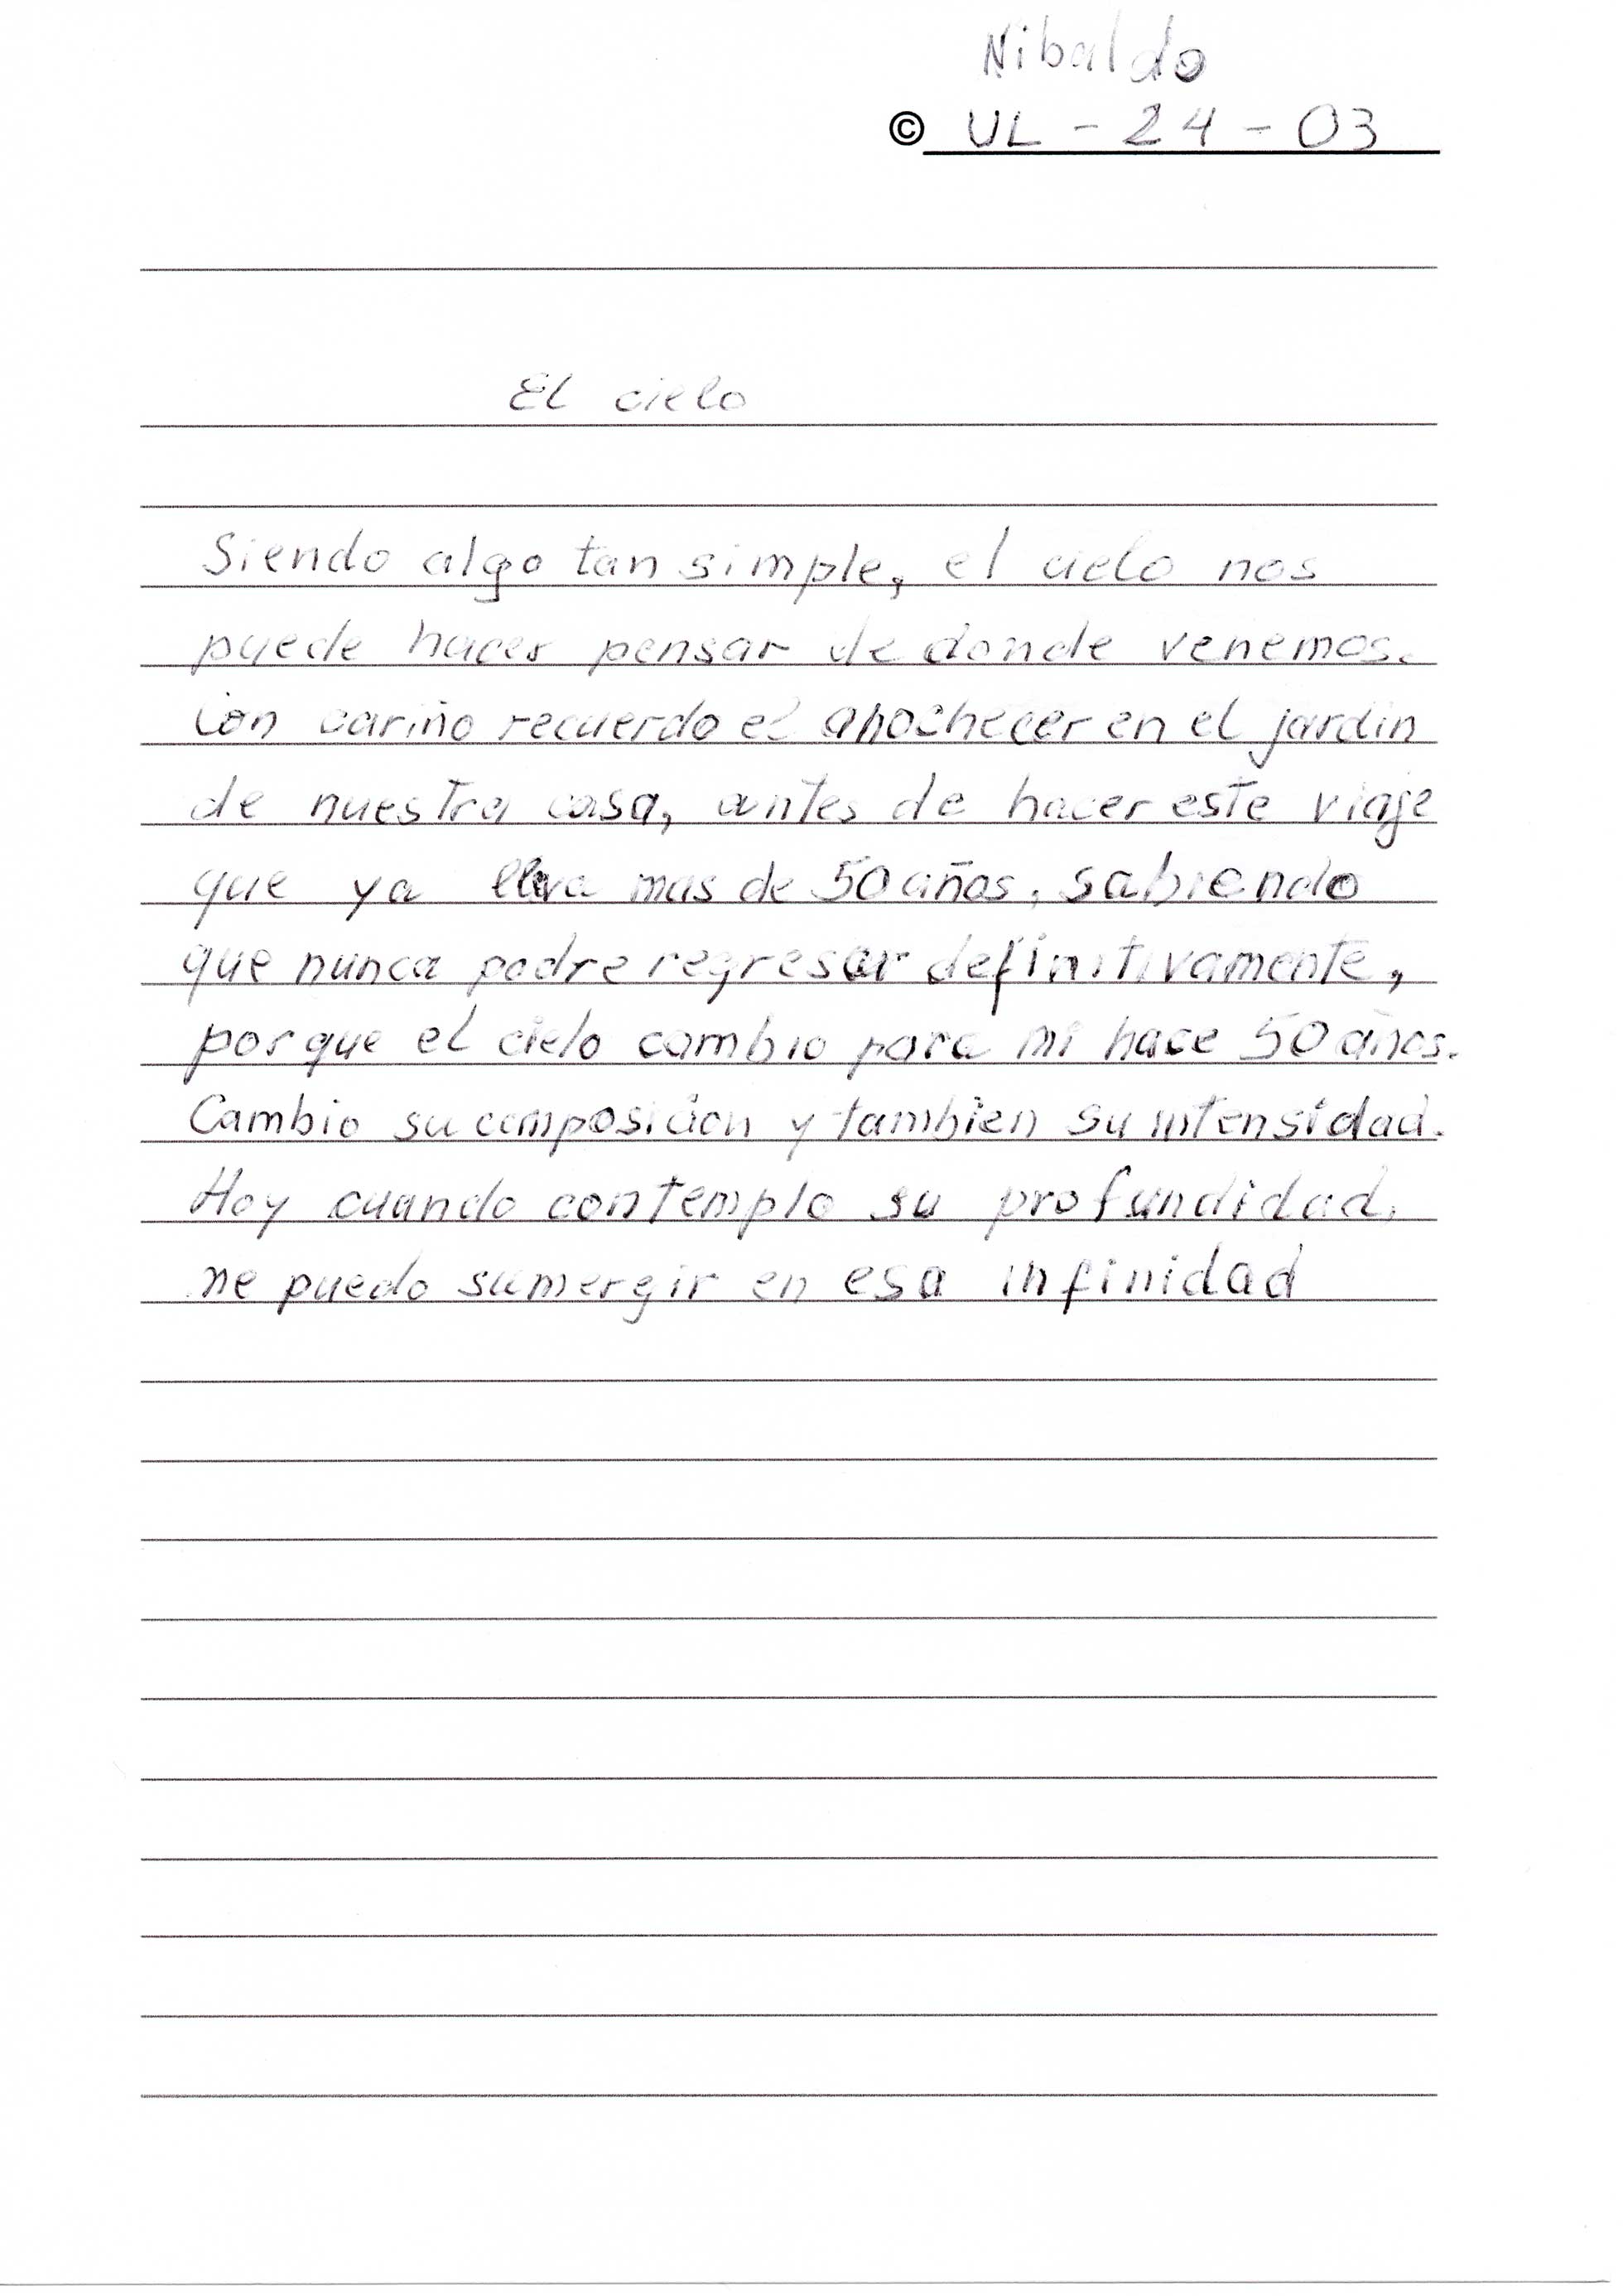 Nibaldo
© UL - 24 - 03
El cielo
Siendo algo tan simple, el cielo nos
puede hacer pensar de donde venemos.
Con cariño recuerdo el anochecer en el jardin
de nuestra casa, antes de hacer este viaje
que ya lleva mas de 50 años, sabiendo
que nunca podre regresar definitivamente,
porque el cielo cambio para mi hace 50 años.
Cambio su composicion y tambien su intensidad.
Hoy cuando contemplo su profundidad,
me puedo sumergir en esa infinidad